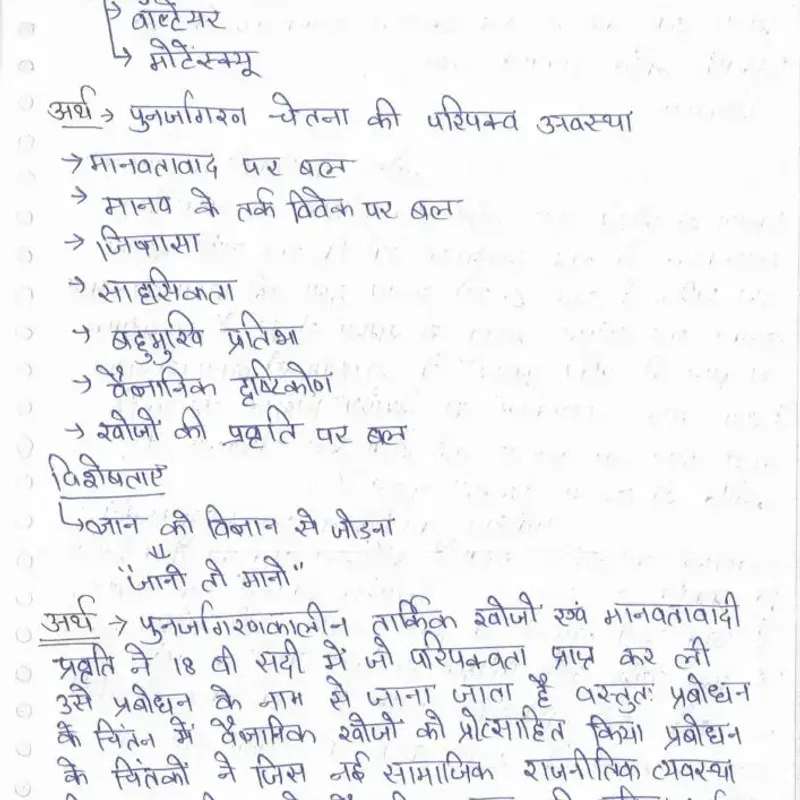 वॉल्टेयर
→ मोटेंस्क्यू
अर्थ → पुनर्जागरन चेतना की परिपक्व अवस्था
→ मानवतावाद पर बल
→ मानव के तर्क विवेक पर बल
→ जिज्ञासा
→ साहसिकता
→ बहुमुखि प्रतिभा
→ वैज्ञानिक दृष्टिकोण
→ खोजों की प्रवृति पर बल
विशेषताएं
→ ज्ञान को विज्ञान से जोडना
"जानो तो मानो"
अर्थ → पुनर्जागरणकालीन तार्किक खोजों एवं मानवतावादी
प्रवृति ने 18 वी सदी में जो परिपक्वता प्राप्त कर ली
उसे प्रबोधन के नाम से जाना जाता है वस्तुतः प्रबोधन
के चिंतन में वैज्ञानिक खोजों को प्रोत्साहित किया प्रबोधन
के चिंतकों ने जिस नई सामाजिक राजनीतिक व्यवस्था